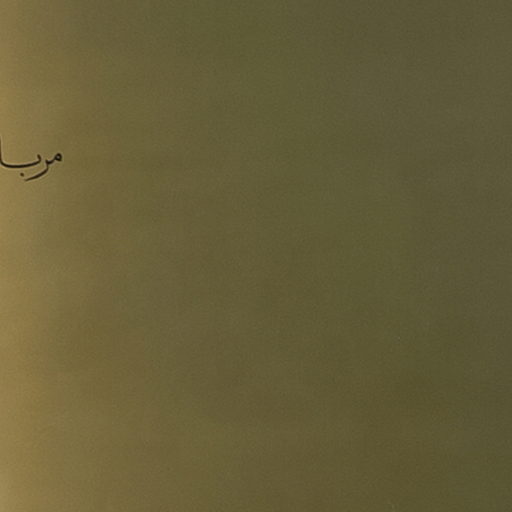 مربا